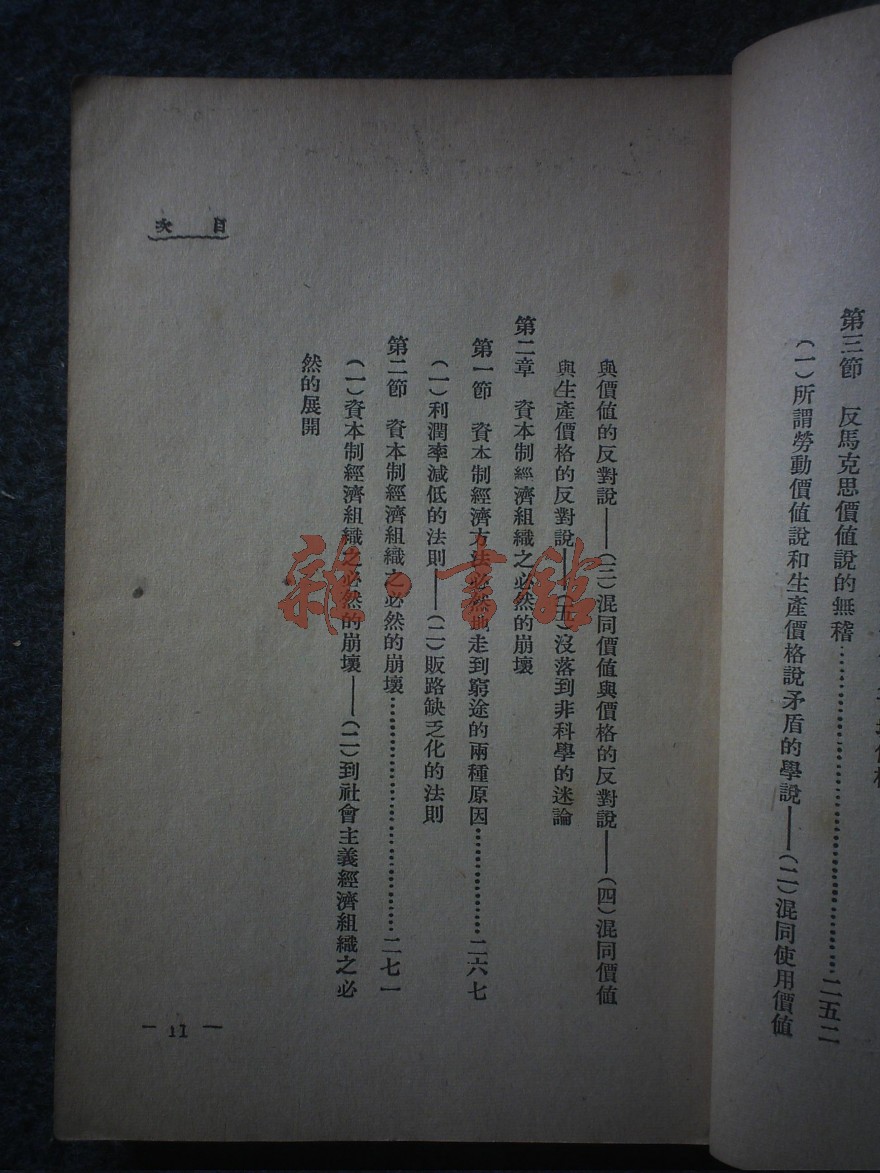 第三節　反馬克思價值說的無稽……二五二
（一）所謂勞動價值說和生產價格說矛盾的學說——（二）混同使用價值
目次
與價值的反對說——（三）混同價值與價格的反對說——（四）混同價值
與生產價格的反對說——（五）沒落到非科學的迷論
第二章　資本制經濟組織之必然的崩壞
第一節　資本制經濟方法必然地走到窮途的兩種原因……二六七
（一）利潤率減低的法則——（二）販路缺乏化的法則
第二節　資本制經濟組織之必然的崩壞……二七一
（一）資本制經濟組織之必然的崩壞——（二）到社會主義經濟組織之必
然的展開
— 11 —
雜·書館